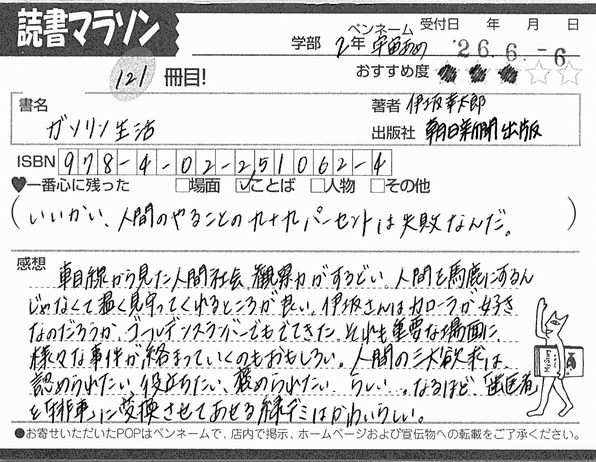 読書マラソン
121 冊目!
学部 2年 ペンネーム 宇宙あめ 受付日 年 月 日
'26.6.-6
おすすめ度 ★★★☆☆
書名
ガソリン生活
著者 伊坂幸太郎
出版社 朝日新聞出版
ISBN 978-4-02-251062-4
♥一番心に残った □場面 ☑ことば □人物 □その他
(いいかい、人間のやることの九十九パーセントは失敗なんだ。)
感想
車目線から見た人間社会、観察力がするどい。人間を馬鹿にするん
じゃなくて温く見守ってくれるところが良い。伊坂さんはカローラが好き
なのだろうか、ゴールデンスランバーでもでてきた、それも重要な場面に。
様々な事件が絡まっていくのもおもしろい。人間の三大欲求は、
認められたい、役立ちたい、褒められたい、らしい。なるほど、「歯医者」
を「敗者」に変換させてあせる緑デミはかわいらしい。
●お寄せいただいたPOPはペンネームで、店内で掲示、ホームページおよび宣伝物への転載をご了承ください。